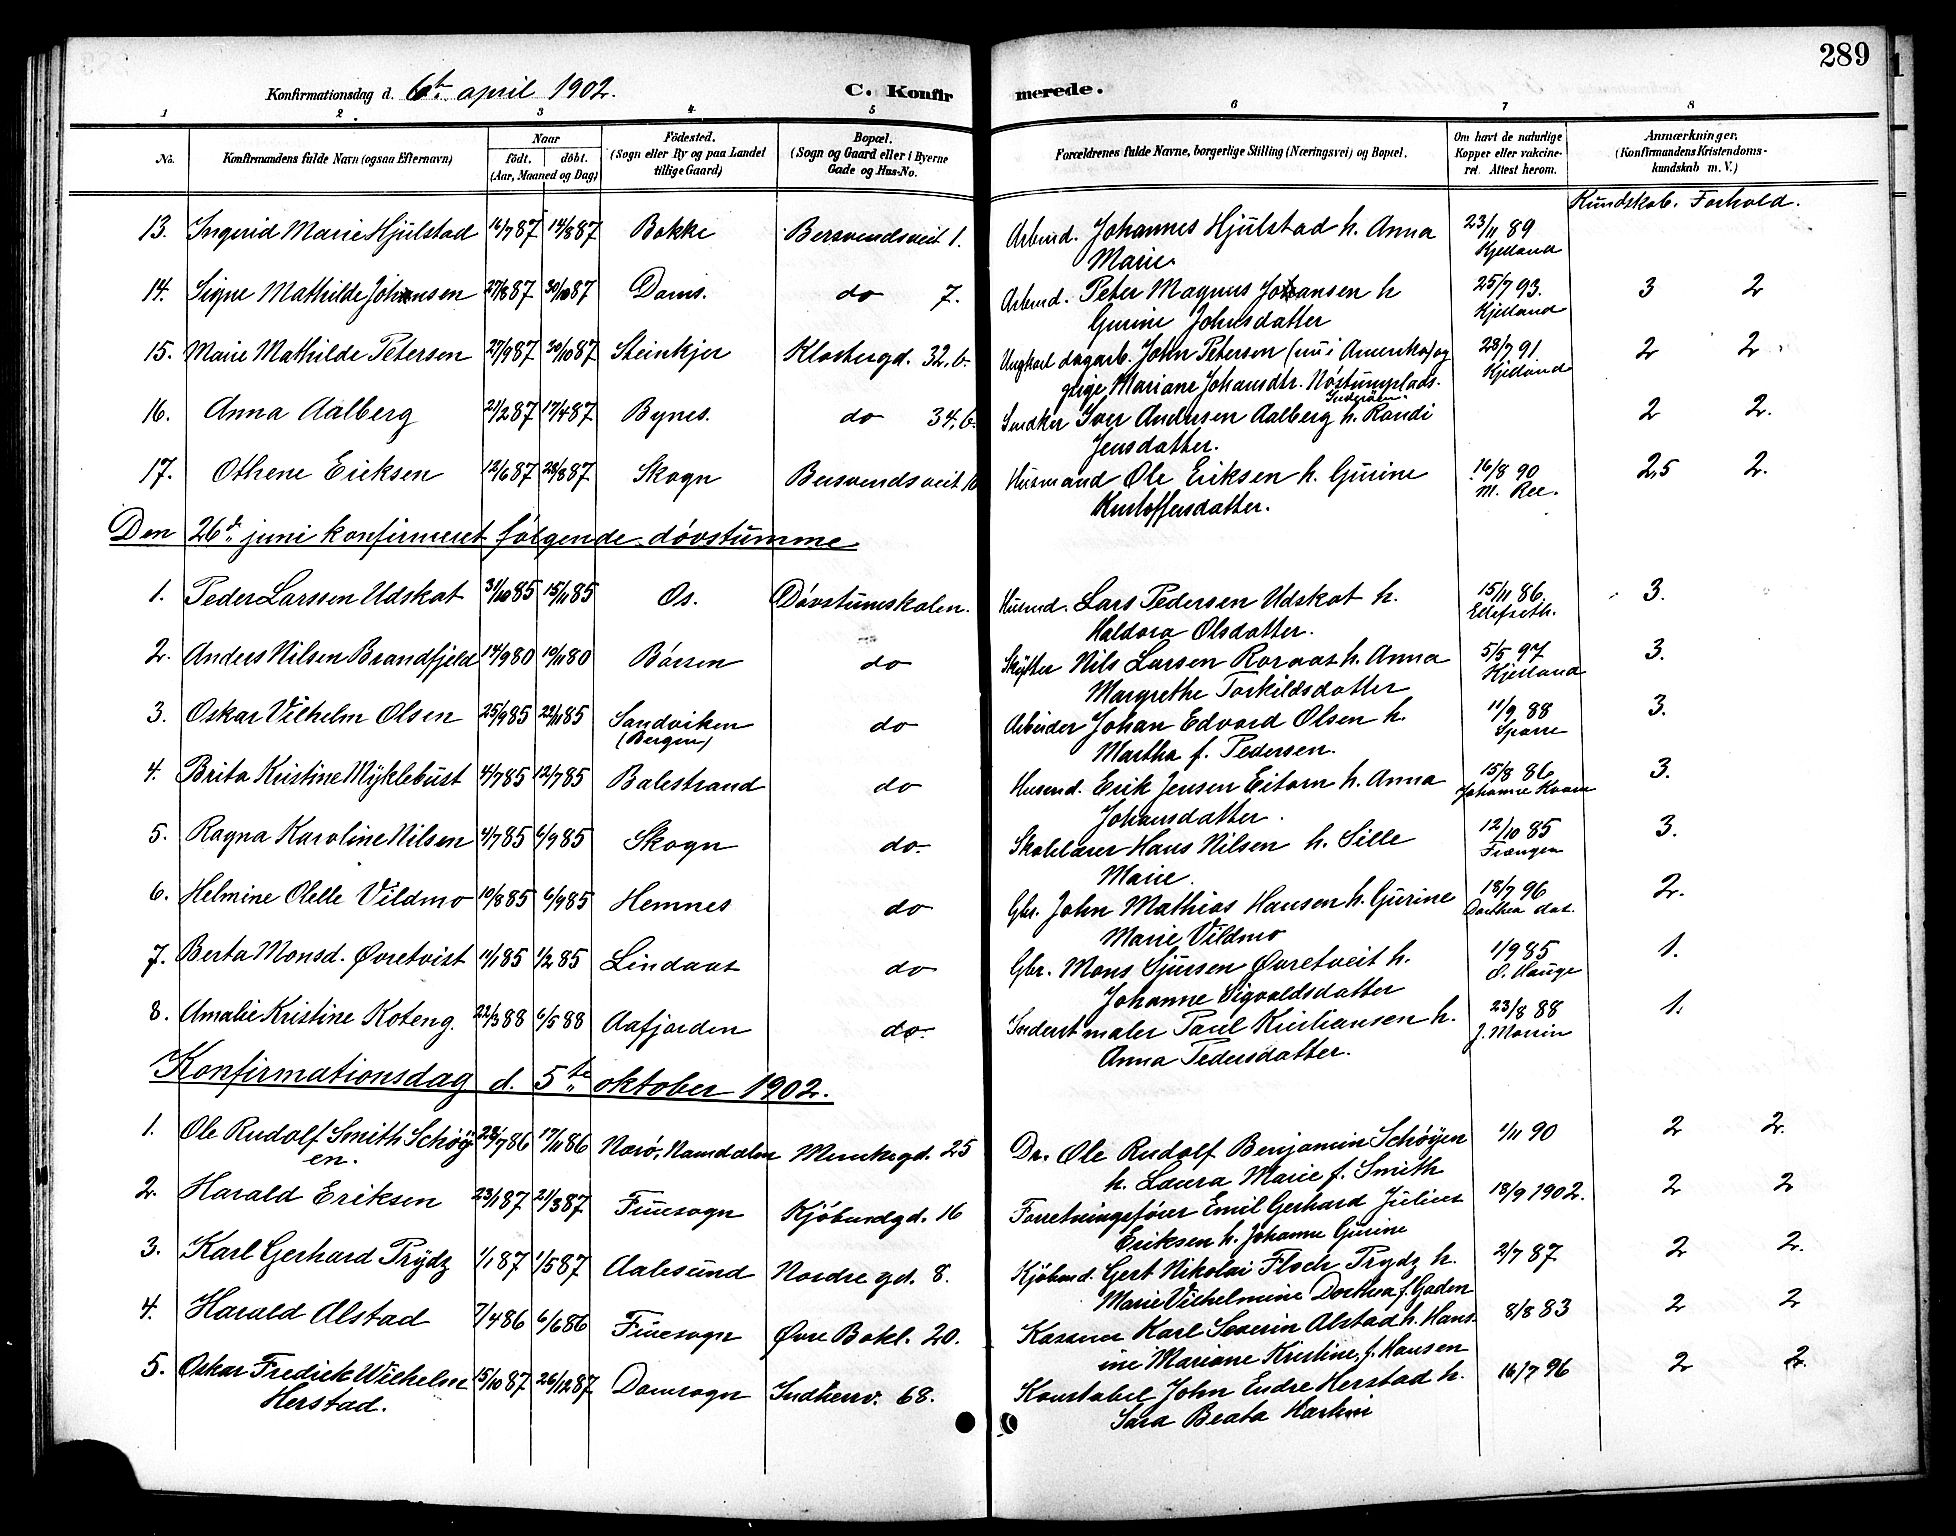 289
Konfirmationsdag d. 6te april 1902. C. Konfirmerede.
1 2 3 4 5 6 7 8
No. Konfirmandens fulde Navn (ogsaa Efternavn) Naar født, døbt. (Aar, Maaned og Dag) Fødested. (Sogn eller By og paa Landet tillige Gaard) Bopæl. (Sogn og Gaard eller i Byerne Gade og Hus-No. Forældrenes fulde Navne, borgerlige Stilling (Næringsvei) og Bopæl. Om havt de naturlige Kopper eller vakcineret. Attest herom. Anmærkninger. (Konfirmandens Kristendomskundskab m. V.)
Kundskab. Forhold.
13. Ingerid Marie Hjulstad 16/7 87 14/8 87 Bakke Bersvendsveit 1. Arbmd. Johannes Hjulstad h. Anna 23/11 89
Marie. Kjelland
14. Signe Mathilde Johansen 27/8 87 30/10 87 Doms. do 7. Arbmd. Peter Magnus Johansen h 25/7 93. 3 2
Gurine Johnsdatter Kjelland
15. Marie Mathilde Petersen 27/9 87 30/10 87 Steinkjer Klostergd. 32.b. Ungkarl dagarb. John Petersen (nu i Amerika) og 28/7 91. 2 2
pige Mariane Johansdtr. Kjelland
16. Anna Aalberg 21/2 87 17/4 87 Bynes. do 34.b. Snedker Iver Andersen Aalberg h. Randi 2 2.
Jensdatter.
17. Othene Eriksen 12/6 87 28/8 87 Skogn Bersvendsveit 10 Husmand Ole Eriksen h. Gurine 16/8 90 2,5 2.
Kristoffersdatter. M. Ree.
Den 26d. juni konfirmeret følgende døvstumme
1. Peder Larssen Udskot 31/10 85 15/11 85 Os. Døvstumskolen. Husmd. Lars Pedersen Udskot h. 15/11 86. 3.
Haldora Olsdatter.
2. Anders Nilsen Brandfjeld 14/9 80 10/11 80 Børsen do Skytter Nils Larsen Roraas h. Anna 5/5 97 3.
Margrethe Torkildsdatter Kjelland
3. Oskar Vilhelm Olsen 25/9 85 22/11 85 Sandviken do Arbeider Johan Edvard Olsen h. 11/9 88 3.
(Bergen) Martha f. Pedersen. Sparre
4. Brita Kristine Myklebust 4/7 85 12/7 85 Balestrand do Husmd. Erik Jensen Eitorn h. Anna 15/8 86 3.
Johansdatter. Johanne Kvam
5. Ragna Karoline Nilsen 4/7 85 6/9 85 Skogn do. Skolelærer Hans Nilsen h. Sille 12/10 85 3.
Marie. Frængen
6. Helmine Olelle Vildmo 10/8 85 6/9 85 Hemnes do Gbr. John Mathias Hansen h. Gurine 18/7 96 2.
Marie Vildmo Dorthea
7. Berta Monsd. Øvretvist 11/1 85 1/2 85 Lindaas do Gbr. Mons Sjursen Øvretveit h. 1/9 85 1.
Johanne Sigvaldsdatter O. Hauge
8. Amalie Kristine Koteng. 22/3 88 6/5 88 Aafjorden do. Inderst maler Paul Kristiansen h. 23/8 88 1.
Anna Pedersdatter.
Konfirmationsdag d. 5te oktober 1902.
1. Ole Rudolf Smith Schøy- 28/7 86 17/11 86 Nærø, Namdalen Munkegd. 25 Dr. Ole Rudolf Benjamin Schøyen 1/11 90 2 2.
en. h. Laura Marie f. Smith
2. Harald Eriksen 23/1 87 21/3 87 Fruesogn Kjøbmdgd. 16 Forretningsfører Emil Gerhard Julius 18/9 1902. 2 2
Eriksen h. Johanne Gurine
3. Karl Gerhard Prydz 1/1 87 1/5 87 Aalesund Nordre gd. 8. Kjøbmd. Gert Nikolai Floch Prydz h. 2/7 87 2 2.
Marie Vilhelmine Dorthea f. Gaden
4. Harald Alstad 7/4 86 6/6 86 Fruesogn Øvre Bakl. 20. Kasserer Karl Severin Alstad h. Hans- 8/8 83 2 2
ine Mariane Kristine, f. Hansen
5. Oskar Fredrick Wilhelm 15/10 87 26/12 87 Domsogn Indherrv. 68. Konstabel John Endre Herstad h. 16/7 96 2 2.
Herstad. Sara Beata